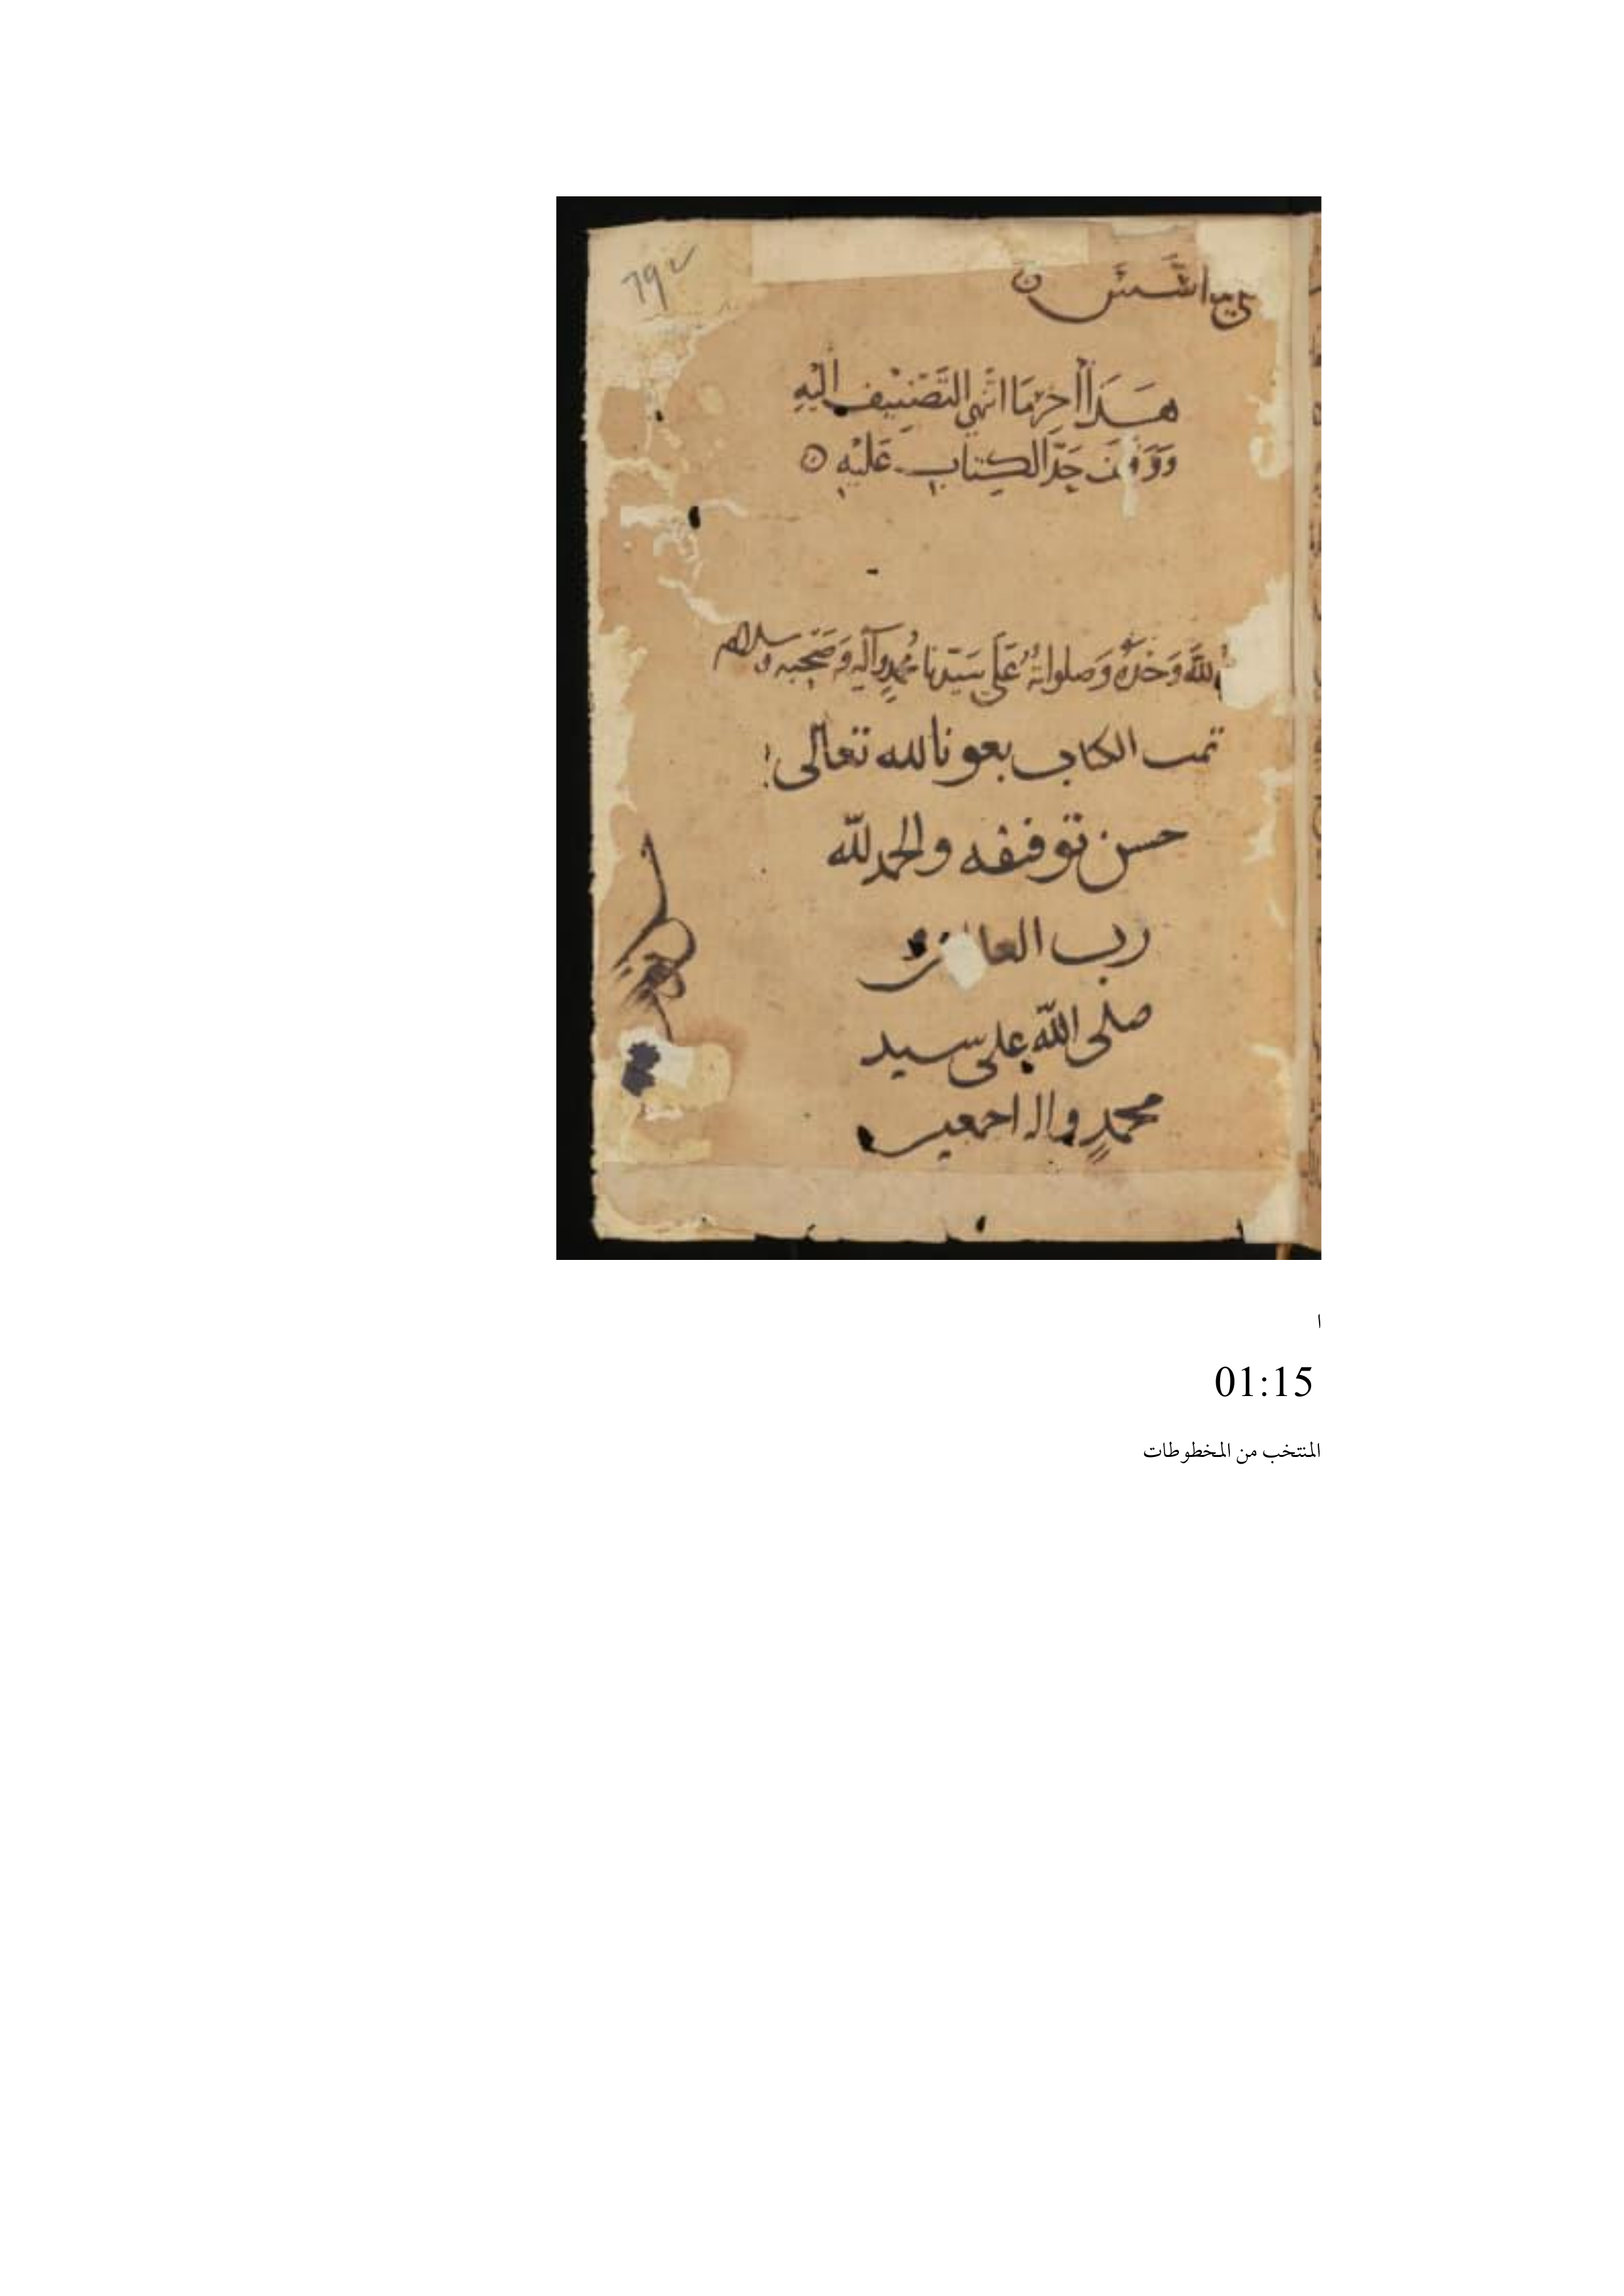 الشمس
٦٩٧
هَذَا اٰخِرُ مَا انتهى التَّصْنِيف اِلَيْهِ
وَوَقَفَ جَدّ الكِتاب عَلَيْهِ
لله وَحْدَهُ وَصلواتهُ عَلَى سَيّدنا مُحمدٍ وآله وَصَحْبِه وسلامه
تمت الكتاب بعون الله تعالى
حسن توفيقه والحمد لله
رب العا
صلى الله على سيد
محمدٍ واله اجمعين
ا
01:15
المنتخب من المخطوطات